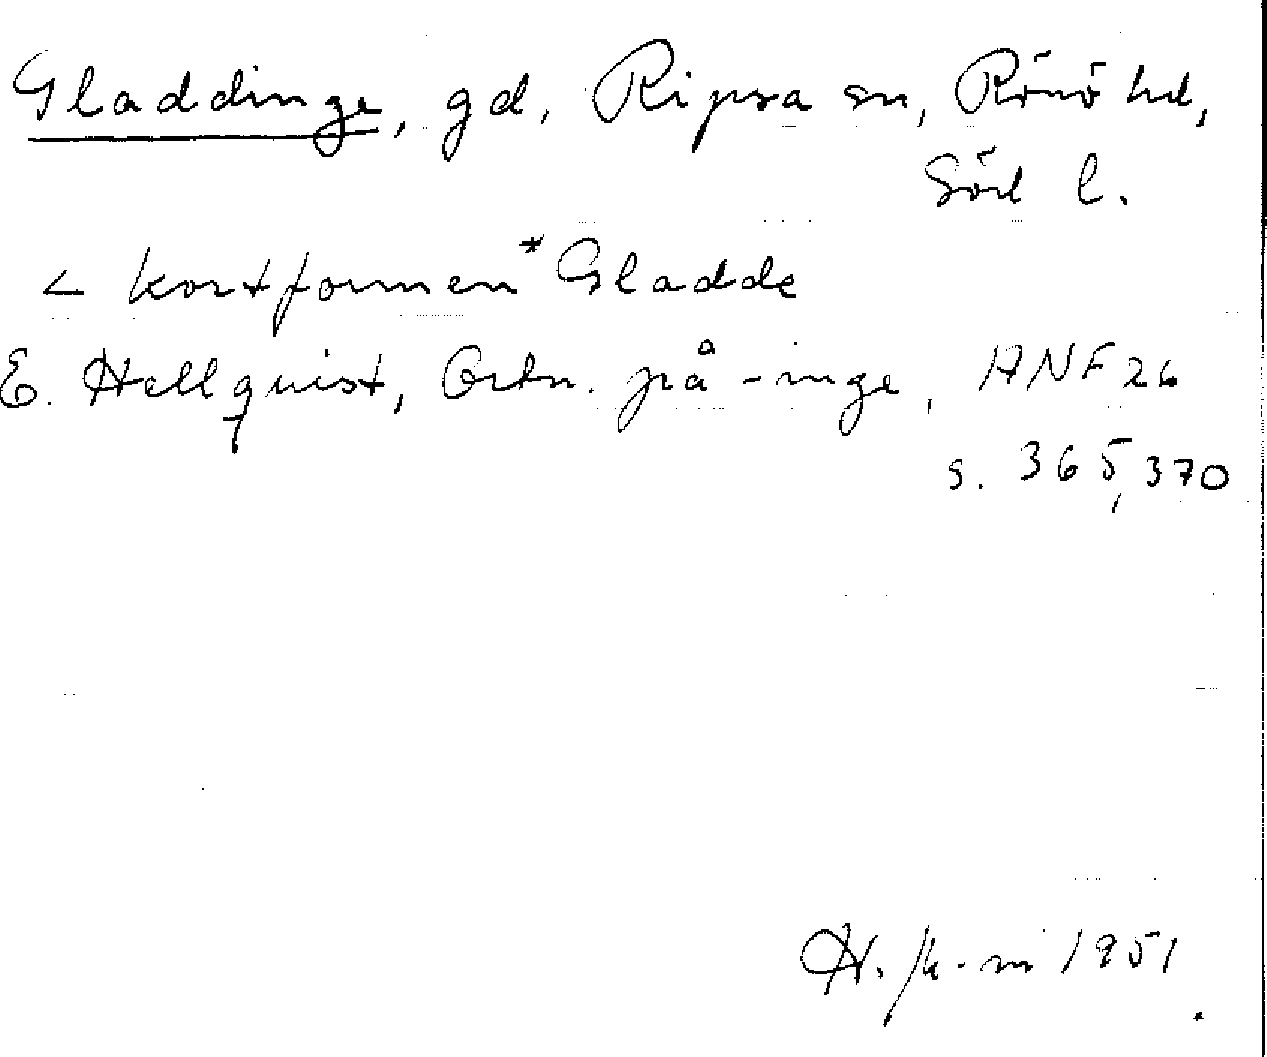 Gladdinge, gd, Ripsa sn, Rönö hd,
Sörl l.
< kortformen *Gladde
E. Hellquist, Ortn. på -inge, ANF 26
s. 365, 370
1951